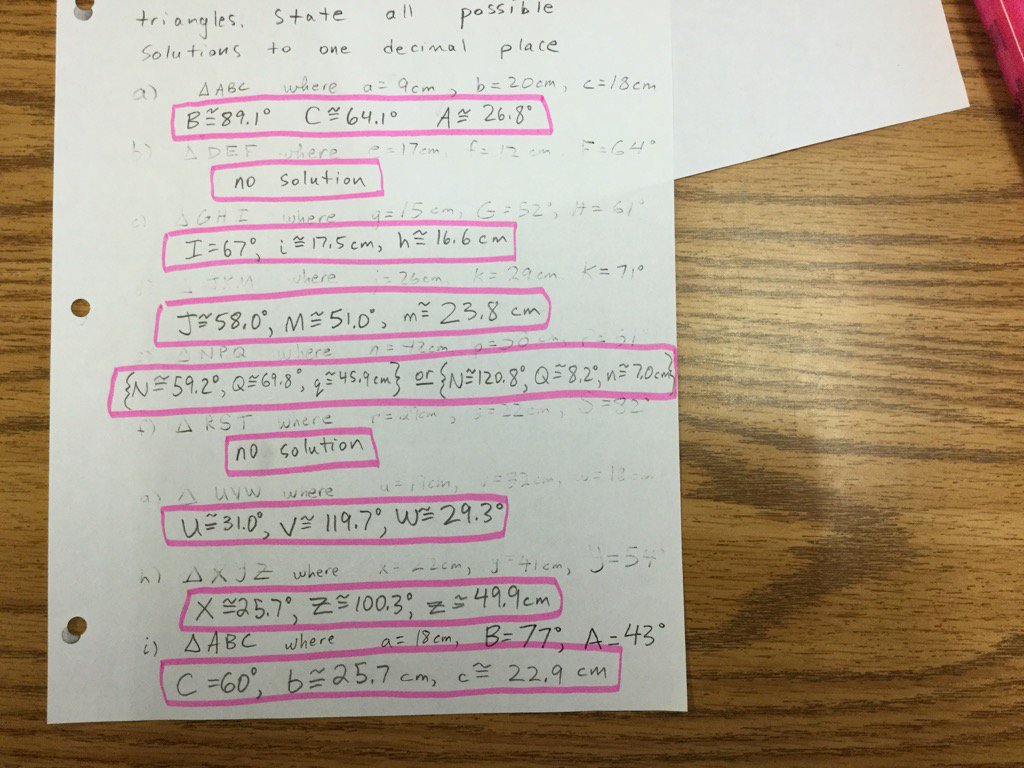 triangles. State all possible
Solutions to one decimal place
a) △ABC where a=9cm, b=20cm, c=18cm
B≅89.1° C≅64.1° A≅26.8°
b) △DEF where e=17cm, f=12cm, F=64°
no solution
c) △GHI where g=15cm, G=52°, H=61°
I=67°, i≅17.5cm, h≅16.6cm
△ where j=26cm k=29cm K=71°
J≅58.0°, M≅51.0°, m≅23.8 cm
△NPQ where
{N≅59.2°, Q≅69.8°, q≅45.9cm} or {N≅120.8°, Q≅8.2°, n≅7.0cm}
f) △RST where S=82°
no solution
△UVW where
U≅31.0°, V≅119.7°, W≅29.3°
h) △XYZ where y=41cm, y=54°
X≅25.7°, Z≅100.3°, z≅49.9cm
i) △ABC where a=18cm, B=77°, A=43°
C=60°, b≅25.7 cm, c≅22.9 cm